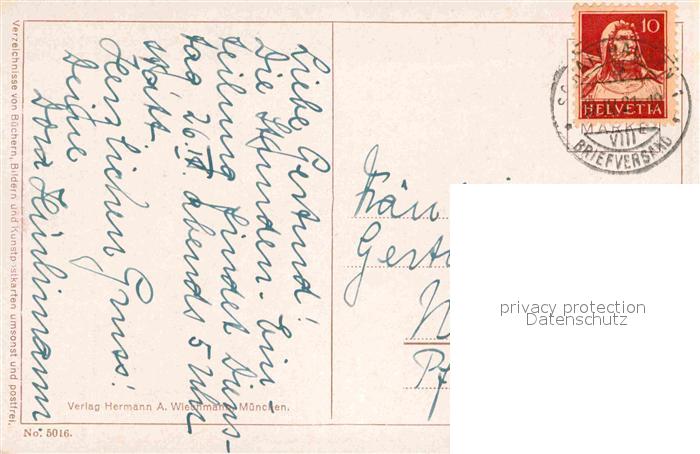 Verzeichnisse von Büchern, Bildern und Kunstpostkarten umsonst und postfrei.
Liebe Gertrud!
Die Stunden-Ein-
teilung findet Diens-
tag 26.IV. abends 5 Uhr
statt.
Herzlichen Gruss!
Deine
Dora Hürlimann.
Verlag Hermann A. Wiechmann, München.
No. 5016.
10
HELVETIA
MARKE
VIII
BRIEFVERSAND
Fräu
Gert
privacy protection
Datenschutz